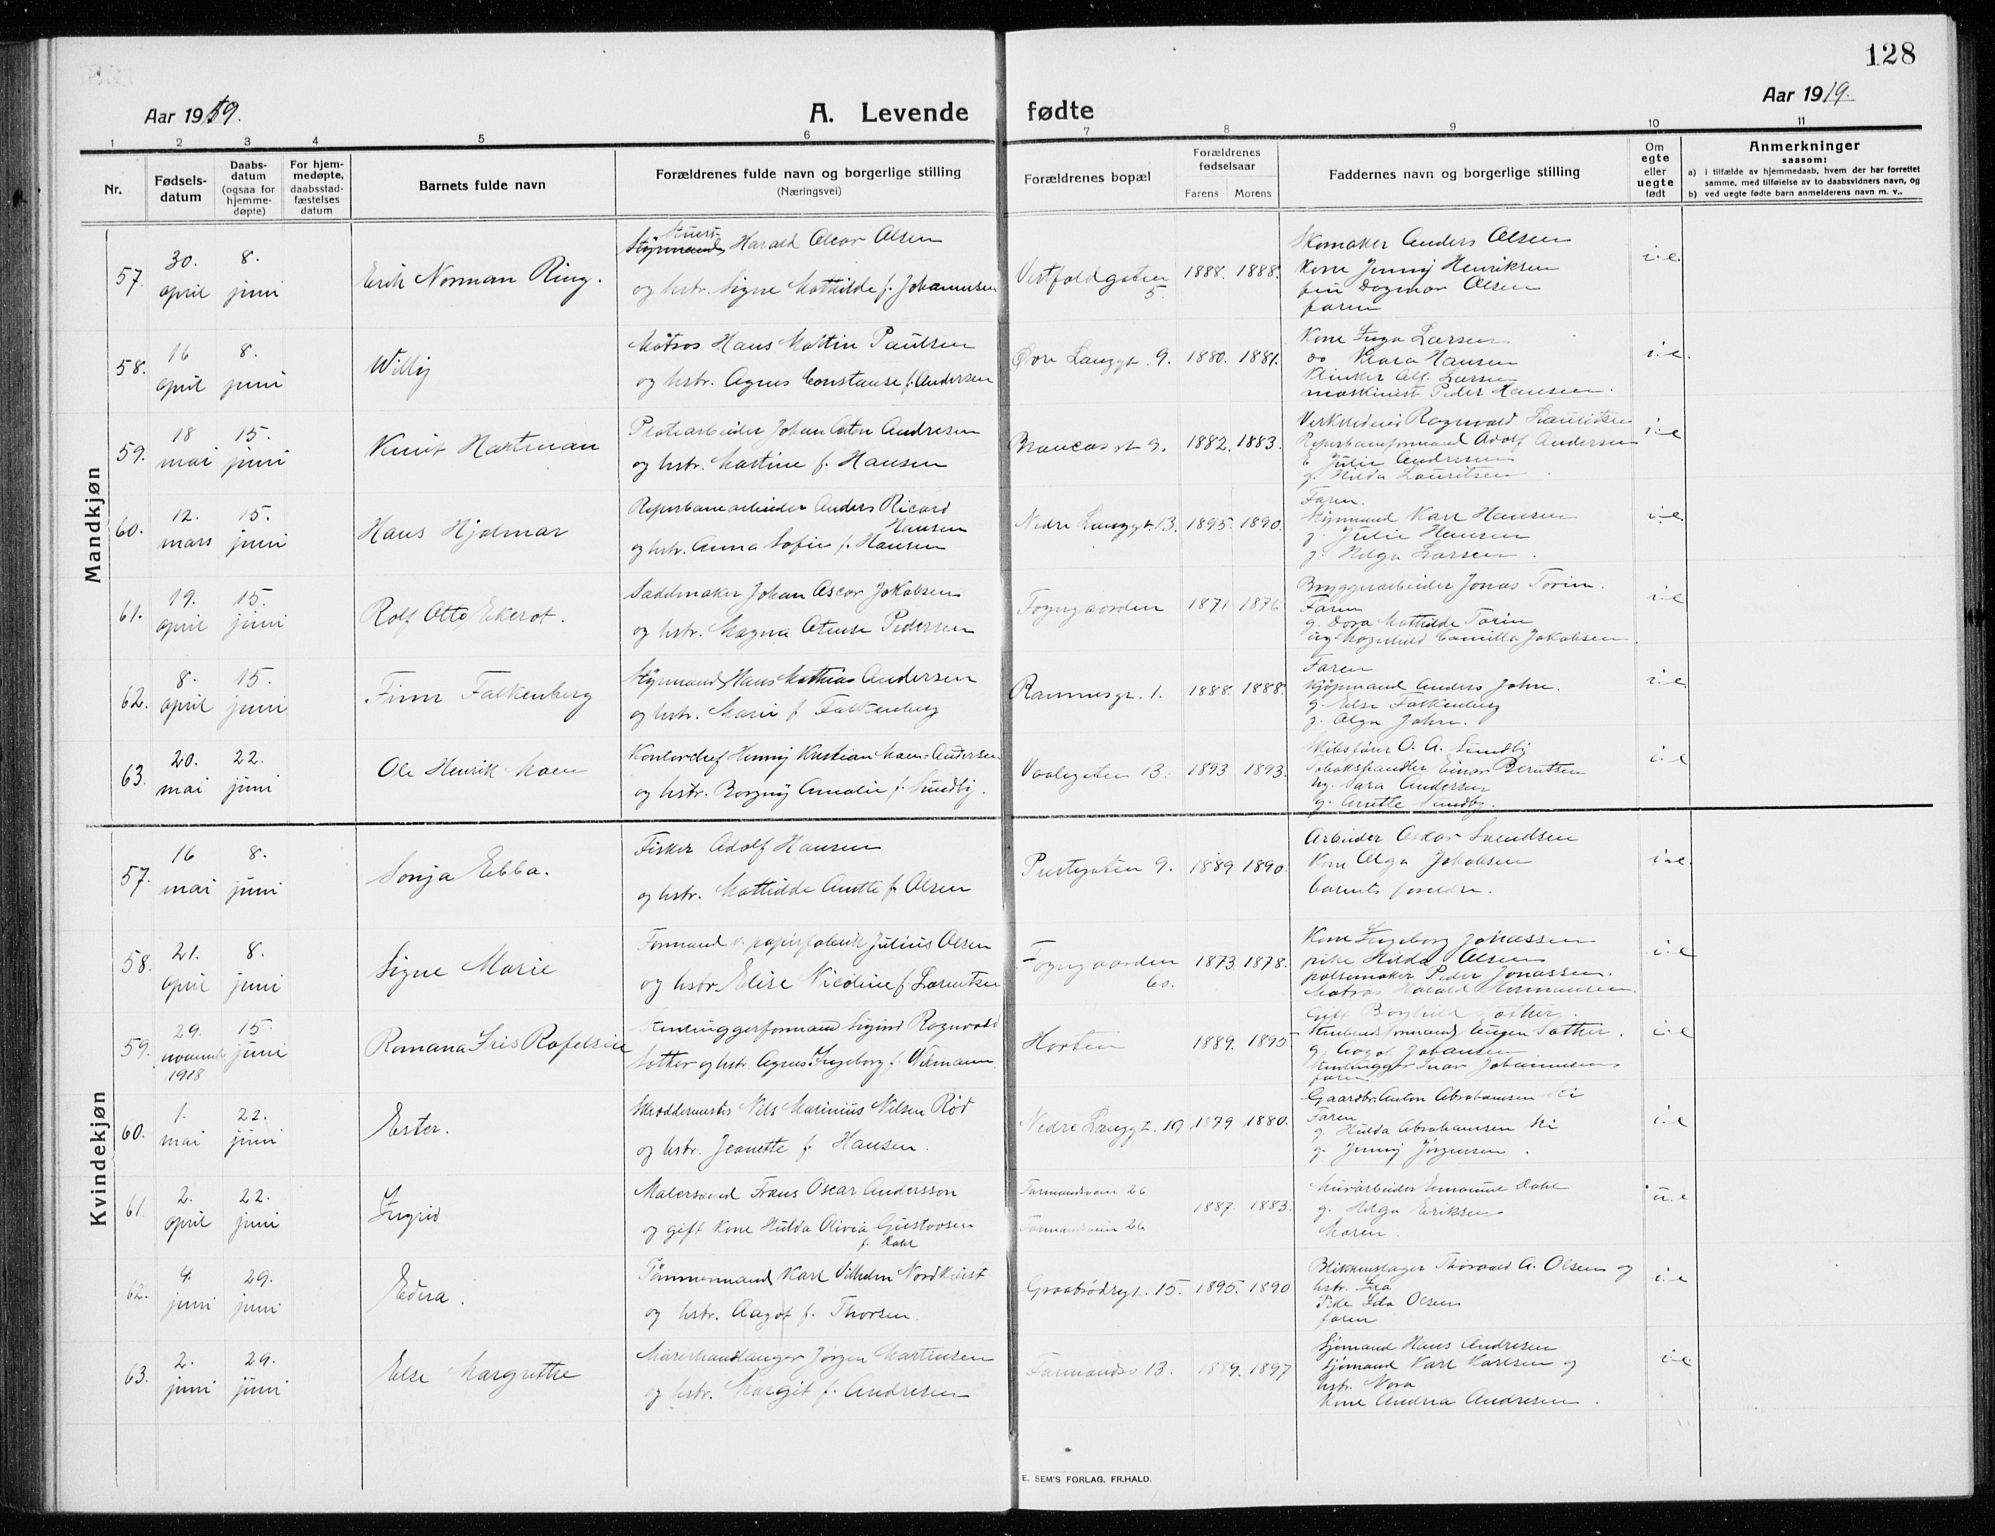 128
Aar 1919.
A. Levende fødte
Aar 1919.
1 2 3 4 5 6 7 8 9 10 11
Nr.
Fødsels-
datum
Daabs-
datum
(ogsaa for
hjemme-
døpte)
For hjem-
medøpte,
daabsstad-
fæstelses
datum
Barnets fulde navn
Forældrenes fulde navn og borgerlige stilling
(Næringsvei)
Forældrenes bopæl
Forældrenes
fødselsaar
Farens Morens
Faddernes navn og borgerlige stilling
Om
egte
eller
uegte
født
Anmerkninger
saasom:
a) i tilfælde av hjemmedaab, hvem der har forrettet
samme, med tilføielse av to daabsvidners navn, og
b) ved uegte fødte barn anmelderens navn m. v..
Mandkjøn
57. 30. april 8. juni Erik Norman Ring.
Stuert Styrmand Harald Olsen
og hstr. Signe Mathilde f. Johannesen
Vestfoldgaten 5. 1888. 1888.
Skomaker Anders Olsen
Kone Jenny Henriksen
frk Dagmar Olsen
faren
i.e.
58. 16 april 8. juni Willy
Matros Hans Martin Paulsen
og hstr. Agnes Constanse f. Andersen
Øvre Langgt. 9. 1880. 1881.
Kone Inga Larsen
do Klara Hansen
Klinker Alf. Larsen
maskinist Peder Hansen.
i.e.
59. 18 mai 15. juni Knut Hartman
Platearbeider Johan Anton Andresen
og hstr. Martine f. Hansen
9. 1882. 1883.
Ragnvald Lauritsen
Reperbaneformand Adolf Andersen
E. Julie Andresen
g. Hilda Lauritsen
i.e.
60. 12. mars 15. juni Hans Hjalmar
Reperbanearbeider Anders Ricard
Hansen
og hstr. Anna Sofie f. Hansen
Nedre Langgt. 13. 1895. 1890.
Faren.
Styrmand Karl Hansen
g. Julie Hansen
g. Helga Larsen.
i.e.
61. 19. april 15. juni Rolf Otto Ekerot.
Sadelmaker Johan Ascar Jakobsen
og hstr. Magna Otense Pedersen
Fogngaarden 1871 1876
Bryggeriarbeider Jonas Torin.
Faren
g. Dora Mathilde Torin
ug. Magnhild Camilla Jakobsen
i.e.
62. 8. april 15. juni Finn Falkenberg
Styrmand Hans Mathias Andersen
og hstr. Marie f Falkenberg
Ramnesgt. 1. 1888. 1888.
Faren
Kjøpmand Anders Jahre.
g. Else Falkenberg
g. Olga Jahre.
i.e.
63. 20. mai 22. juni Ole Henrik Moen
Kontorchef Henny Kristian Moen-Andersen
og hstr. Borgny Amalie f. Sundby.
13. 1893 1893.
Skibsfører O. A. Sundby
Tobakshandler Einar Berntsen
ug. Sara Andersen
g. Anette Sundby.
i.e.
Kvindekjøn
57. 16 mai 8. juni Sonja Ebba.
Fisker Adolf Hansen
og hstr. Mathilde Anette f. Olsen
Prestegaten 9. 1889 1890.
Arbeider Oskar Svendsen
Kone Olga Jakobsen
barnets forældre.
i.e.
58. 21. april 8. juni Signe Marie
Formand v. papirfabrik Julius Olsen
og hstr Elise Nicoline f. Larentsen
Fogngaarden 1873. 1878.
Kone Ingeborg Jonassen
pike Hilda Olsen
pølsemaker Peder Jonassen.
Matros Harald Hermansen.
i.e
59. 29. novembr 1918 15. juni Romana Iris Rafelsine
Sigurd Ragnvald
Sæther og hstr. Agnes Ingeborg f. Wikmann
Horten 1889. 1895
Gift Borghild Sæther.
formand Eugen Sæther.
g. Aagot Johansen
Ivar Johannesen
faren
i.e
60. 1. mai 22. juni Ester.
Skreddermester Nils Marinius Nilsen Rød
og hstr. Jeanette f. Hansen.
Nedre Langgt. 19 1879 1880.
Gaardbr. Anton Abrahamsen Ski
Faren
g. Hulda Abrahamsen Ski
g. Jenny Jørgensen.
i.e
61. 2. april 22. juni Ingrid
Malersvend Frans Oscar Andersson
og gift kone Hulda Olivia Gustavsen
f. Dahl
Farmandsvein 26
Farmandsvein 26
1887. 1883.
Murarbeider Emanuel Dahl
g. Helga Eriksen
Moren.
u.e
62. 4. juni 29. juni Edera.
Tømmermand Karl Vilhelm Nordkvist
og hstr. Aagot f. Thorsen
Graabrødregt. 15. 1895. 1890
Blikkenslager Thorvald A. Olsen og
hstr. Ida
Pike Ida Olsen
faren
i.e
63. 2. juni 29. juni Else Margrethe
Murerhandlanger Jørgen Martinsen
og hstr. Margit f. Andresen
Farmandsv 13. 1889. 1897
Sjømand Hans Andresen
Sjømand Karl Karlsen og
hstr. Nora
Kone Andrea Andresen.
i.e
E. SEM'S FORLAG, FR.HALD.